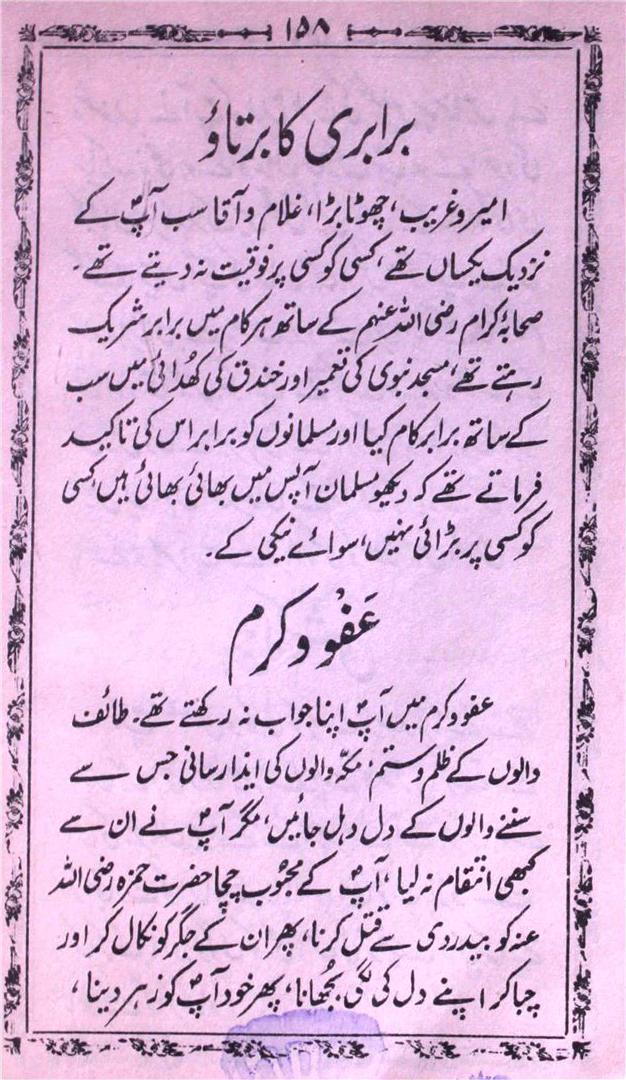 ۱۵۸
برابری کا برتاؤ
امیر و غریب، چھوٹا بڑا، غلام و آقا سب آپؐ کے
نزدیک یکساں تھے، کسی کو کسی پر فوقیت نہ دیتے تھے۔
صحابۂ کرام رضی اللہ عنہم کے ساتھ ہر کام میں برابر شریک
رہتے تھے، مسجد نبوی کی تعمیر اور خندق کی کھُدائی میں سب
کے ساتھ برابر کام کیا اور مسلمانوں کو برابر اس کی تاکید
فرماتے تھے کہ دیکھو مسلمان آپس میں بھائی بھائی ہیں، کسی
کو کسی پر بڑائی نہیں، سوائے نیکی کے۔
عَفْو و کرم
عفو و کرم میں آپؐ اپنا جواب نہ رکھتے تھے۔ طائف
والوں کے ظلم و ستم، مکّہ والوں کی ایذا رسانی جس سے
سننے والوں کے دل دہل جائیں، مگر آپؐ نے ان سے
کبھی انتقام نہ لیا، آپؐ کے محبُوب چچا حضرت حمزہ رضی اللہ
عنہ کو بیدردی سے قتل کرنا، پھر ان کے جگر کو نکال کر اور
چبا کر اپنے دل کی لگی بُجھانا، پھر خود آپؐ کو زہر دینا،